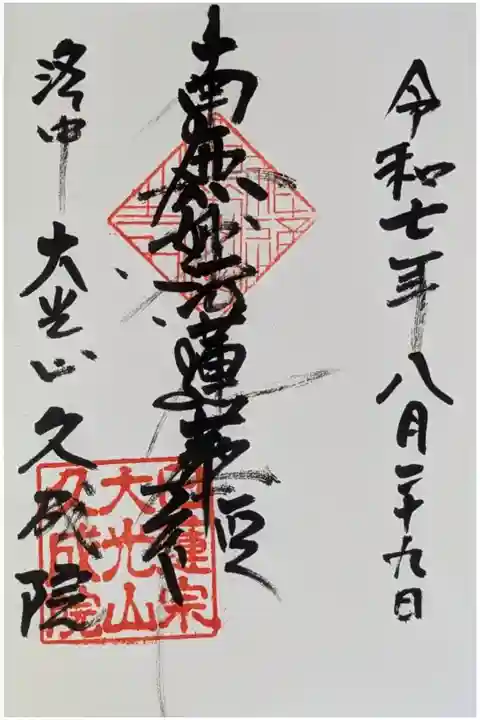 令和七年八月二十九日
南無妙法蓮華経
洛中 大光山久成院
日蓮宗
大光山
久成院